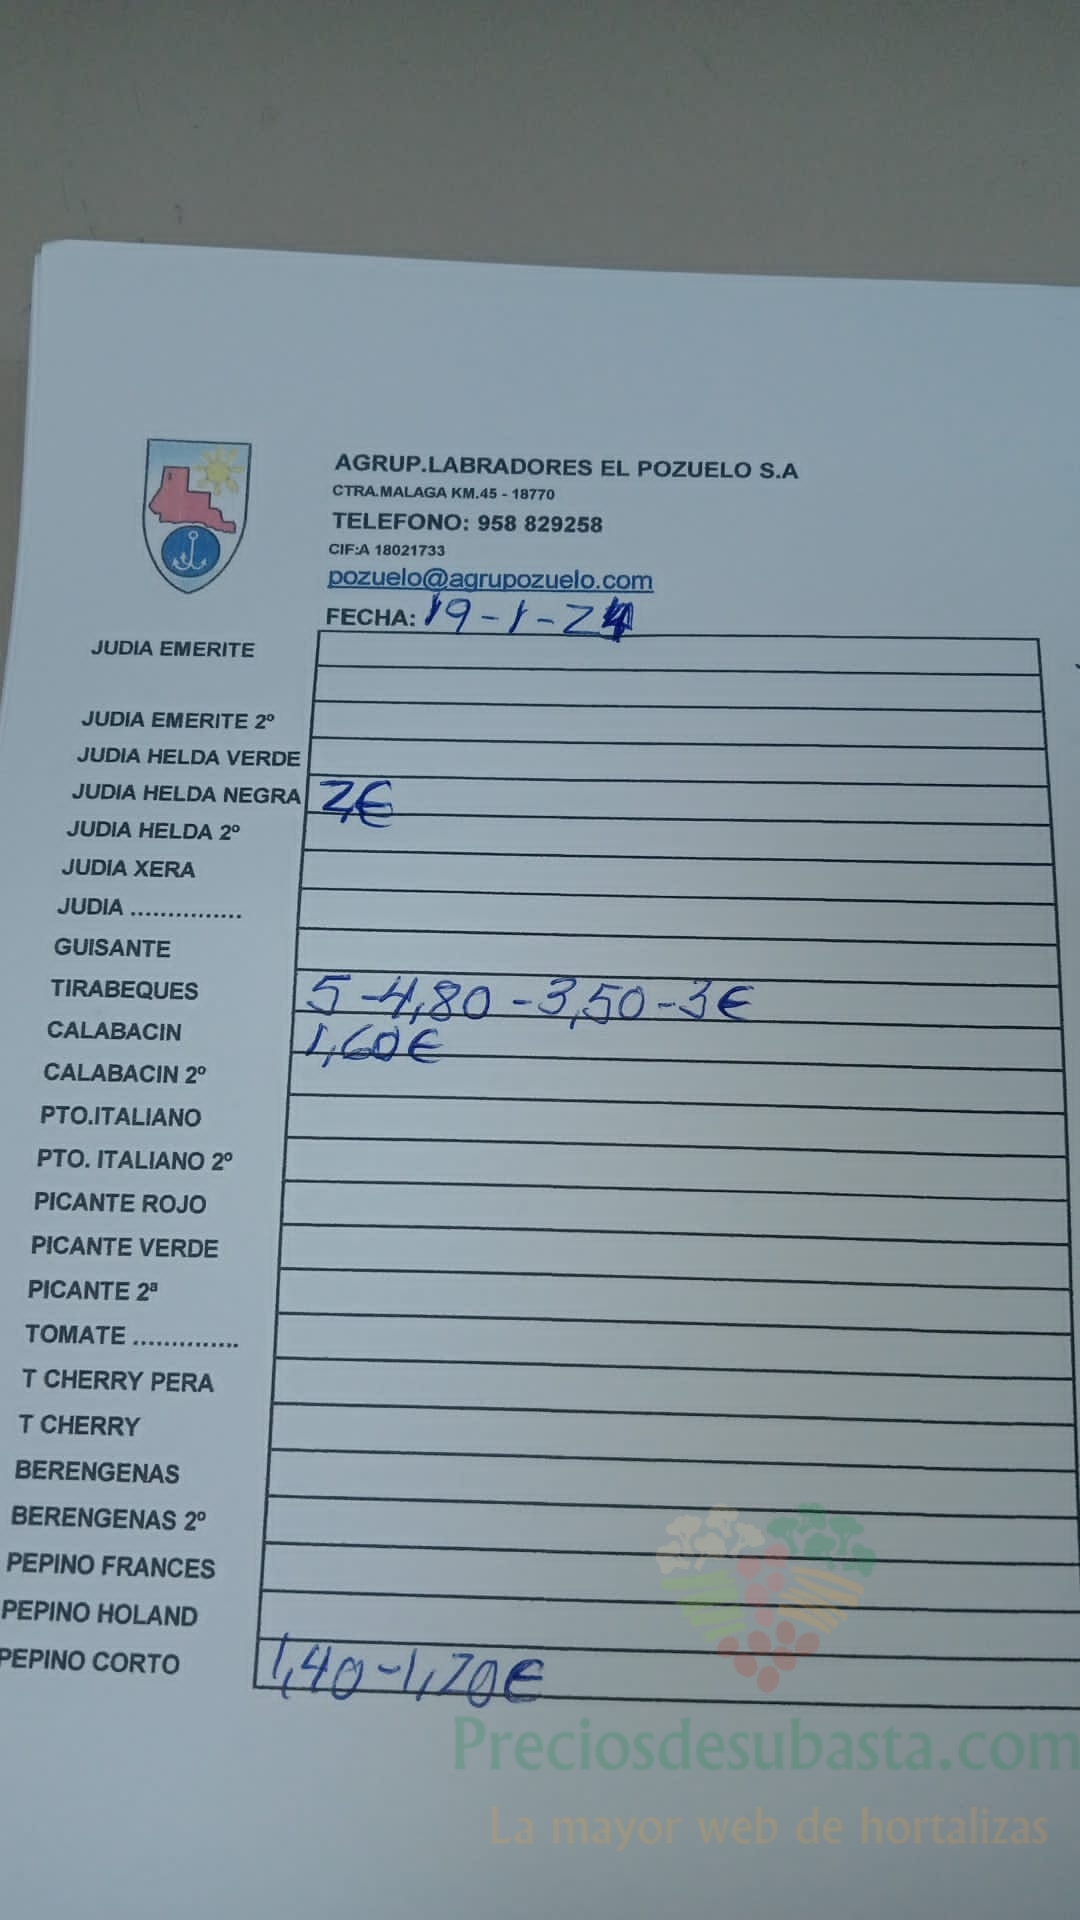 AGRUP.LABRADORES EL POZUELO S.A
CTRA.MALAGA KM.45 - 18770
TELEFONO: 958 829258
CIF:A 18021733
pozuelo@agrupozuelo.com
FECHA: 19-1-24
JUDIA EMERITE
JUDIA EMERITE 2º
JUDIA HELDA VERDE
JUDIA HELDA NEGRA 2€
JUDIA HELDA 2º
JUDIA XERA
JUDIA ...............
GUISANTE
TIRABEQUES 5-4,80-3,50-3€
CALABACIN 1,60€
CALABACIN 2º
PTO.ITALIANO
PTO. ITALIANO 2º
PICANTE ROJO
PICANTE VERDE
PICANTE 2ª
TOMATE ..............
T CHERRY PERA
T CHERRY
BERENGENAS
BERENGENAS 2º
PEPINO FRANCES
PEPINO HOLAND
PEPINO CORTO 1,40-1,20€
Preciosdesubasta.com
La mayor web de hortalizas